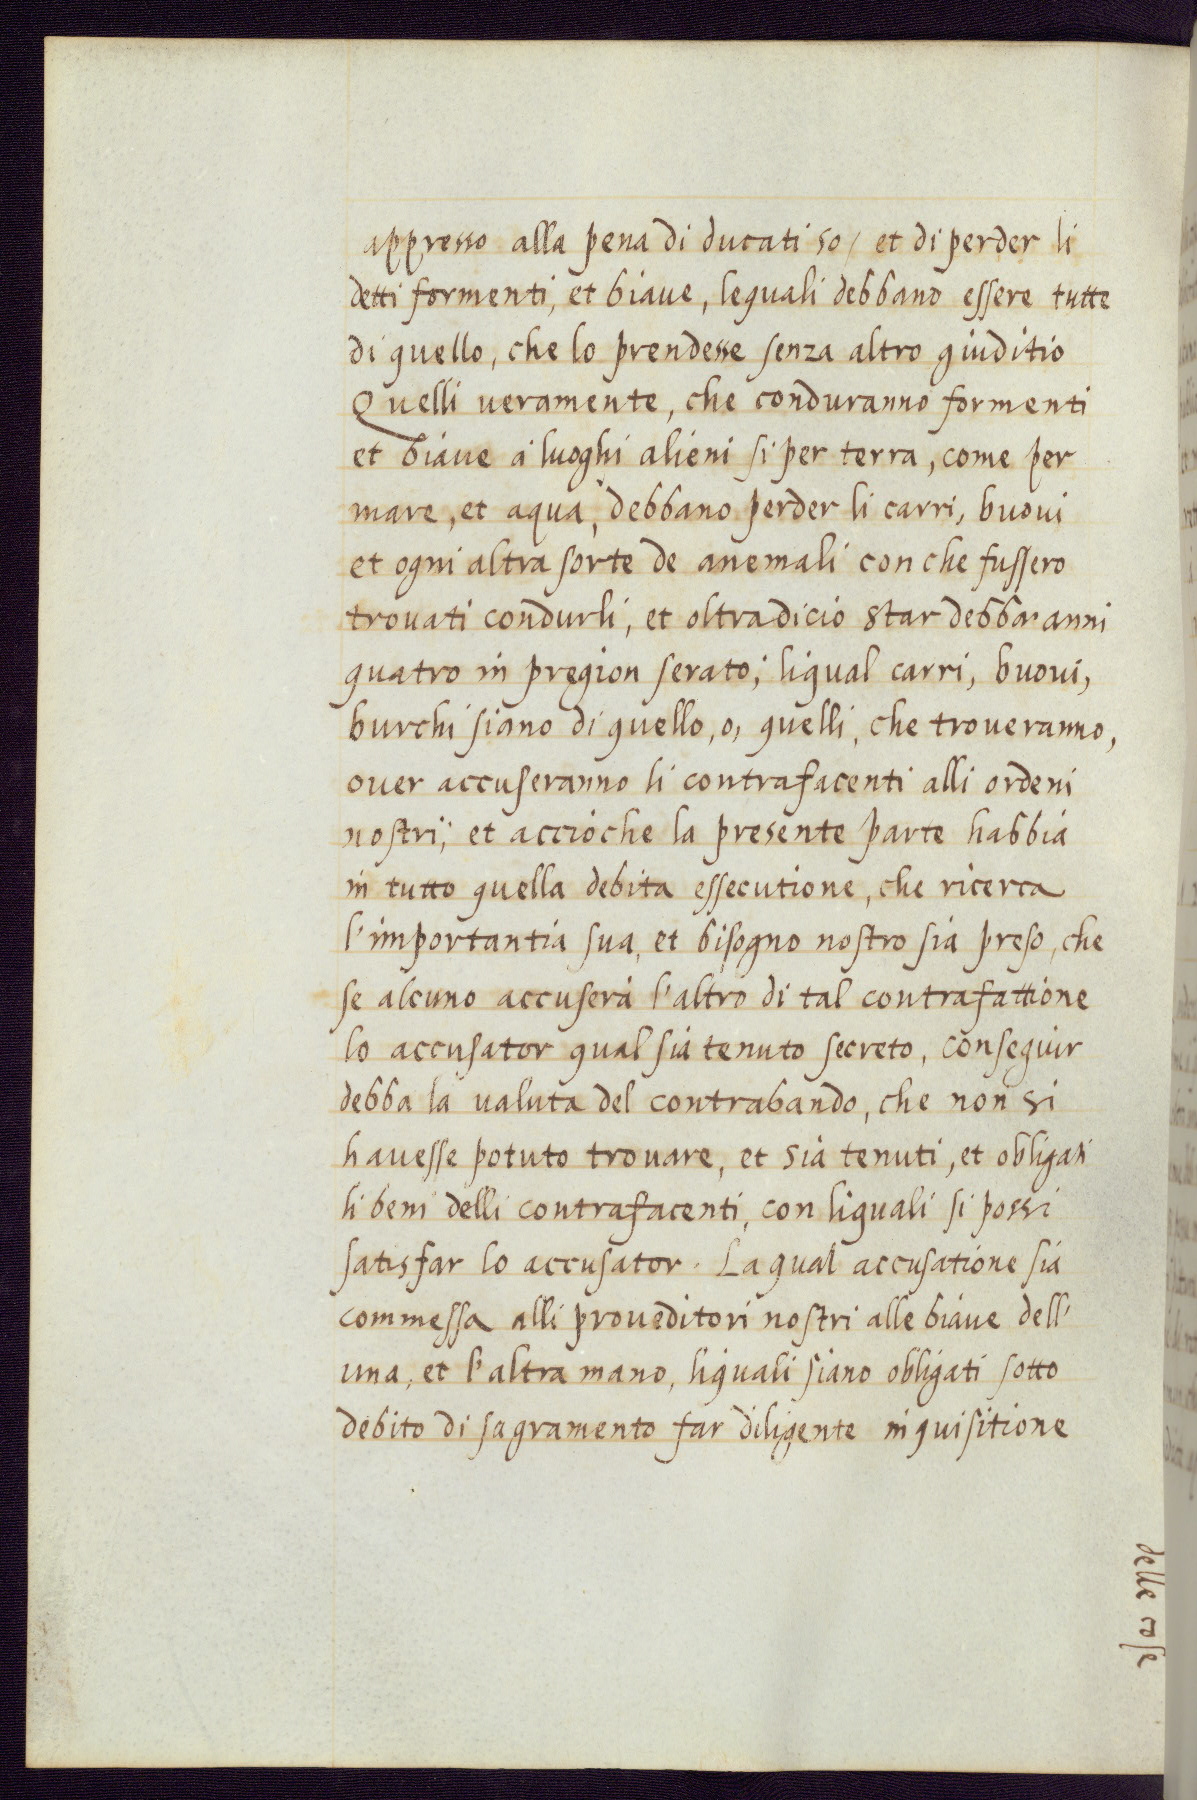 appresso alla pena di ducati 50/ et di perder li
detti formenti, et biaue, lequali debbano essere tutte
di quello, che lo prendesse senza altro giuditio
Quelli ueramente, che conduranno formenti
et biaue a luoghi alieni si per terra, come per
mare, et aqua, debbano perder li carri, buoui
et ogni altra sorte de anemali con che fussero
trouati condurli, et oltradicio star debbar anni
quatro in pregion serato; liqual carri, buoui,
burchi siano di quello, o, quelli, che troueranno,
ouer accuseranno li contrafacenti alli ordeni
nostri; et accioche la presente parte habbia
in tutto quella debita essecutione, che ricerca
l'importantia sua, et bisogno nostro sia preso, che
se alcuno accuserà l'altro di tal contrafattione
lo accusator qual sia tenuto secreto, conseguir
debba la ualuta del contrabando, che non si
hauesse potuto trouare, et sia tenuti, et obligati
li beni delli contrafacenti, con liquali si possi
satisfar lo accusator. La qual accusatione sia
commessa alli proueditori nostri alle biaue dell'
una, et l'altra mano, liquali siano obligati sotto
debito di sagramento far diligente inquisitione
delle cose